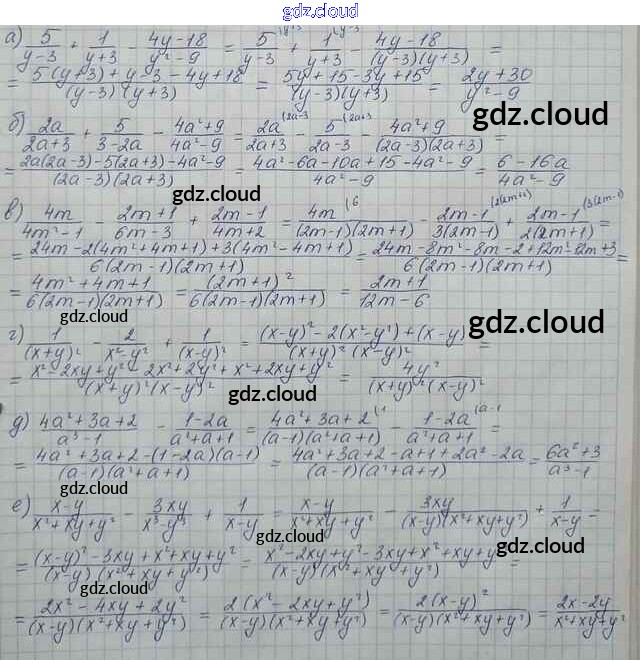 gdz.cloud
а) 5/(y-3) + 1/(y+3) - (4y-18)/(y²-9) = 5/(y-3) (y+3 + 1/(y+3) (y-3 - (4y-18)/((y-3)(y+3)) =
= (5(y+3)+y-3-4y+18)/((y-3)(y+3)) = (5y+15-3y+15)/((y-3)(y+3)) = (2y+30)/(y²-9)
б) 2a/(2a+3) + 5/(3-2a) - (4a²+9)/(4a²-9) = 2a/(2a+3) (2a-3 - 5/(2a-3) (2a+3 - (4a²+9)/((2a-3)(2a+3)) =
gdz.cloud
= (2a(2a-3)-5(2a+3)-4a²-9)/((2a-3)(2a+3)) = (4a²-6a-10a+15-4a²-9)/(4a²-9) = (6-16a)/(4a²-9)
gdz.cloud
в) 4m/(4m²-1) - (2m+1)/(6m-3) + (2m-1)/(4m+2) = 4m/((2m-1)(2m+1)) (6 - (2m-1)/(3(2m-1)) (2(2m+1) + (2m-1)/(2(2m+1)) (3(2m-1) =
= (24m-2(4m²+4m+1)+3(4m²-4m+1))/(6(2m-1)(2m+1)) = (24m-8m²-8m-2+12m²-12m+3)/(6(2m-1)(2m+1)) =
= (4m²+4m+1)/(6(2m-1)(2m+1)) = (2m+1)²/(6(2m-1)(2m+1)) = (2m+1)/(12m-6)
gdz.cloud
gdz.cloud
г) 1/(x+y)² - 2/(x²-y²) + 1/(x-y)² = ((x-y)²-2(x²-y²)+(x-y)/((x+y)²(x-y)²) =
= (x²-2xy+y²-2x²+2y²+x²+2xy+y²)/((x+y)²(x-y)²) = 4y²/((x+y)²(x-y)²)
gdz.cloud
gdz.cloud
д) (4a²+3a+2)/(a³-1) - (1-2a)/(a²+a+1) = (4a²+3a+2)/((a-1)(a²+a+1)) (1 - (1-2a)/(a²+a+1) (a-1 =
= (4a²+3a+2-(1-2a)(a-1))/((a-1)(a²+a+1)) = (4a²+3a+2-a+1+2a²-2a)/((a-1)(a²+a+1)) = (6a²+3)/(a³-1)
gdz.cloud
е) (x-y)/(x²+xy+y²) - 3xy/(x³-y³) + 1/(x-y) = (x-y)/(x²+xy+y²) - 3xy/((x-y)(x²+xy+y²)) + 1/(x-y) =
gdz.cloud
gdz.cloud
= ((x-y)²-3xy+x²+xy+y²)/((x-y)(x²+xy+y²)) = (x²-2xy+y²-3xy+x²+xy+y²)/((x-y)(x²+xy+y²)) =
gdz.cloud
= (2x²-4xy+2y²)/((x-y)(x²+xy+y²)) = 2(x²-2xy+y²)/((x-y)(x²+xy+y²)) = 2(x-y)²/((x-y)(x²+xy+y²)) = (2x-2y)/(x²+xy+y²)
gdz.cloud